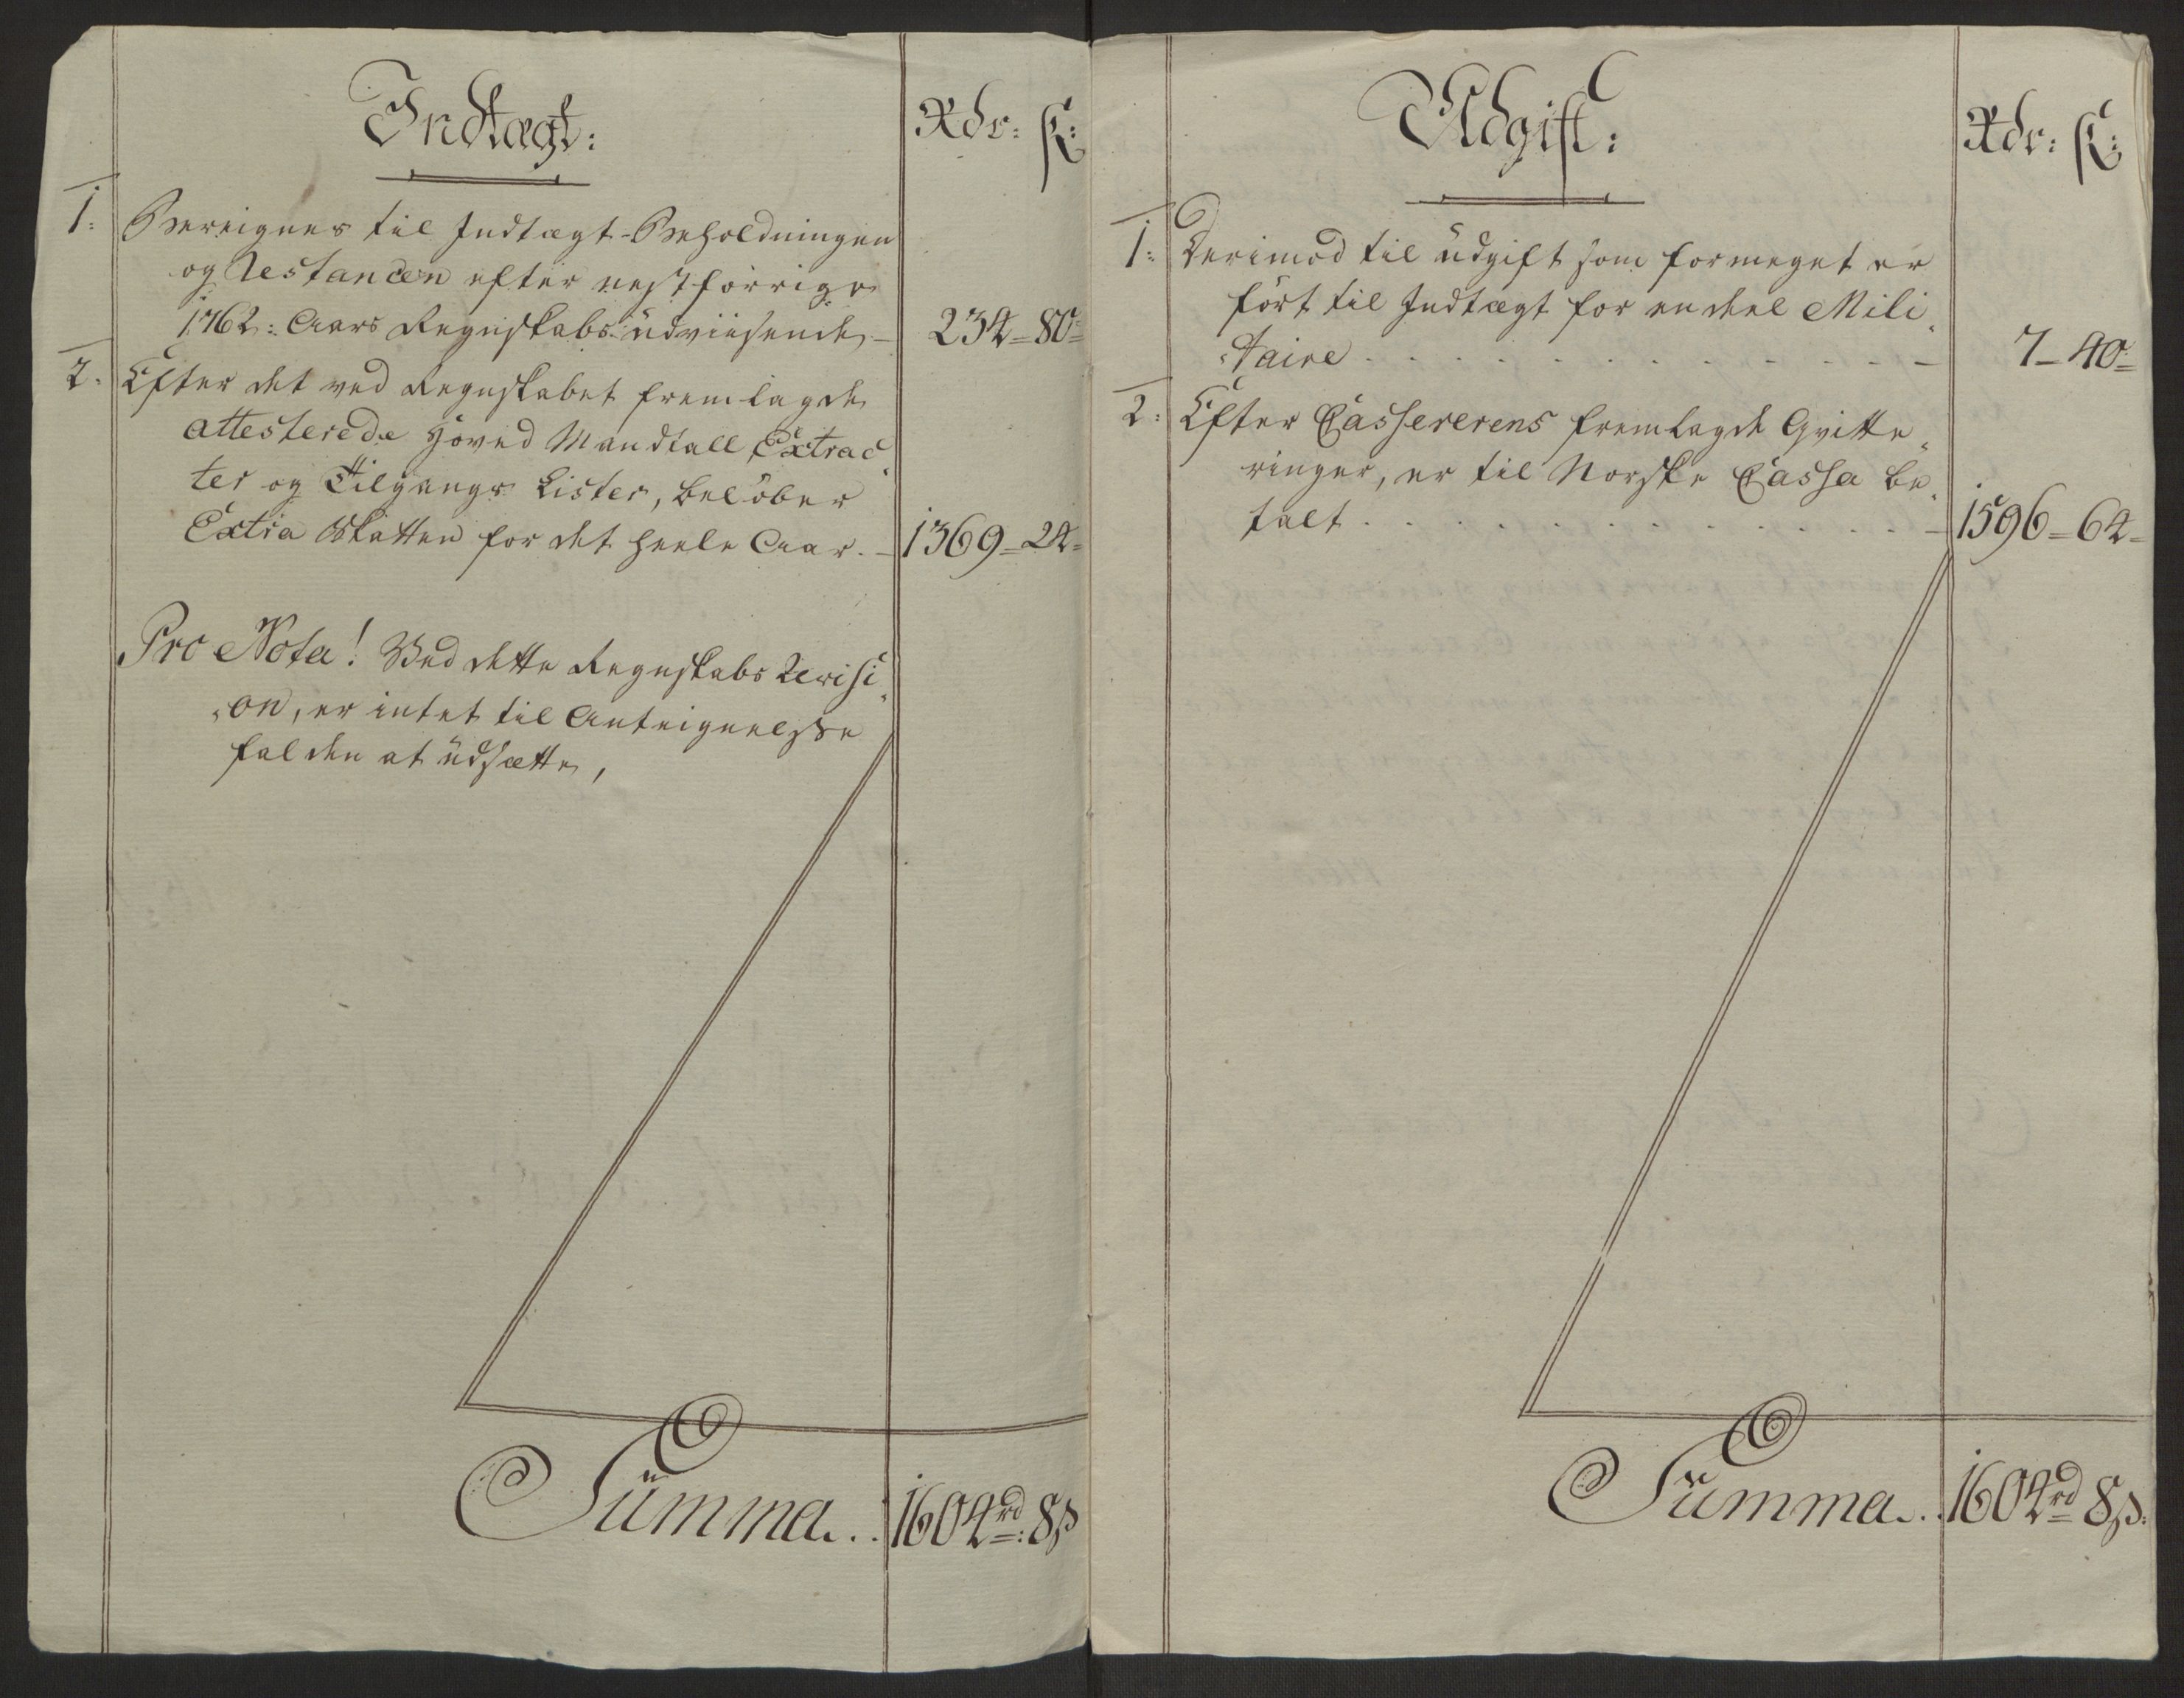 Indtægt:
Rdr: ß:
1: Beregnes til Indtægt-Beholdningen
og Restancen efter nestforrige
1762: Aars Regnskabs udviisende - 234 = 80 =
2. Efter det ved Regnskabet fremlagde
attesterede Hoved Mandtall, Extrac„
ter og Tilgangs Lister, beløber
Extra Skatten for det heele Aar. - 1369 = 24 =
Pro Nota! Ved dette Regnskabs Revisi„
„on, er intet til Anteignelsse
falden at udsætte,
Summa . . 1604rd: 8ß
Udgift:
Rdr: ß:
1: Derimod til udgift som formeget er
ført til Indtægt for en deel Mili„
„taire . . . . . . . . . . . . - - 7 - 40 =
2: Efter Cassererens fremlagde Qvitte„
ringer, er til Norske Cassa be„
talt . . . . . . . . . . . . . - 1596 = 64 =
Summa . . 1604rd 8ß: